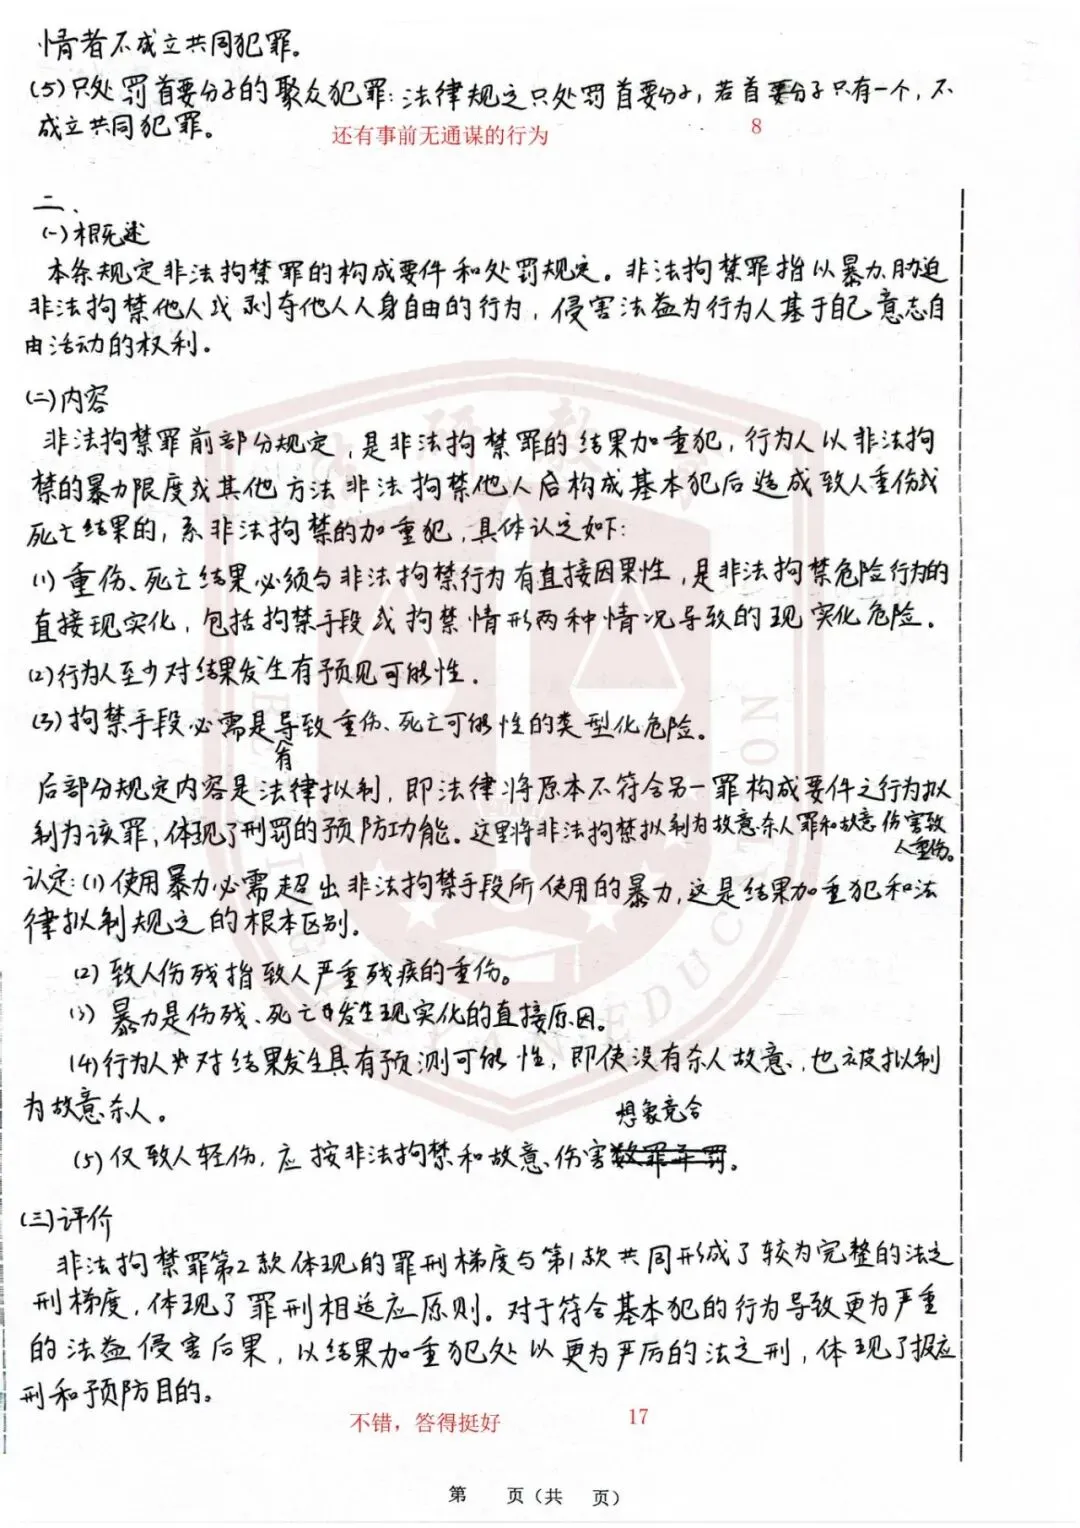 情者不成立共同犯罪。
(5)只处罚首要分子的聚众犯罪:法律规定只处罚首要分子,若首要分子只有一个,不
成立共同犯罪。
还有事前无通谋的行为 8
二、
(一)概述
本条规定非法拘禁罪的构成要件和处罚规定。非法拘禁罪指以暴力、胁迫
非法拘禁他人或剥夺他人人身自由的行为,侵害法益为行为人基于自己意志自
由活动的权利。
(二)内容
非法拘禁罪前部分规定,是非法拘禁罪的结果加重犯,行为人以非法拘
禁的暴力限度或其他方法非法拘禁他人后构成基本犯后造成致人重伤或
死亡结果的,系非法拘禁的加重犯,具体认定如下:
(1)重伤、死亡结果必须与非法拘禁行为有直接因果性,是非法拘禁危险行为的
直接现实化,包括拘禁手段或拘禁情形两种情况导致的现实化危险。
(2)行为人至少对结果发生有预见可能性。
(3)拘禁手段必需是导致重伤、死亡可能性的类型化危险。
有
后部分规定内容是法律拟制,即法律将原本不符合另一罪构成要件之行为拟
制为该罪,体现了刑罚的预防功能。这里将非法拘禁拟制为故意杀人罪和故意伤害致
人重伤。
认定:(1)使用暴力必需超出非法拘禁手段所使用的暴力,这是结果加重犯和法
律拟制规定的根本区别。
(2)致人伤残指致人严重残疾的重伤。
(3)暴力是伤残、死亡发生现实化的直接原因。
(4)行为人必对结果发生具有预测可能性,即使没有杀人故意,也被拟制
为故意杀人。
想象竞合
(5)仅致人轻伤,应按非法拘禁和故意伤害数罪并罚。
(三)评价
非法拘禁罪第2款体现的罪刑梯度与第1款共同形成了较为完整的法定
刑梯度,体现了罪刑相适应原则。对于符合基本犯的行为导致更为严重
的法益侵害后果,以结果加重犯处以更为严厉的法定刑,体现了报应
刑和预防目的。
不错,答得挺好 17
第 页(共 页)